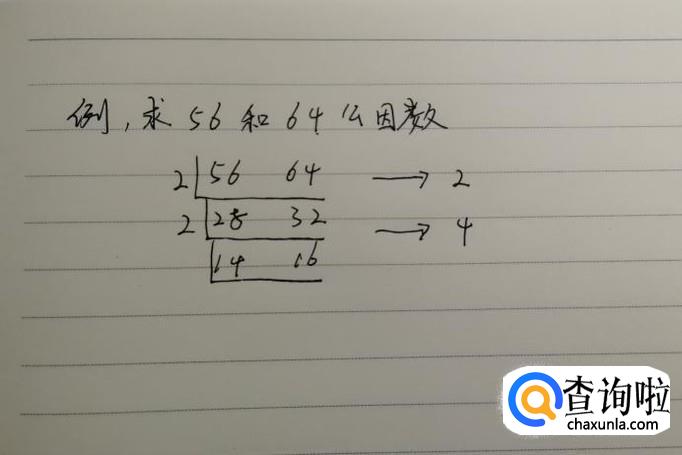 例，求 56 和 64 公因数
2 56 64 → 2
2 28 32 → 4
14 16
查询啦
chaxunla.com